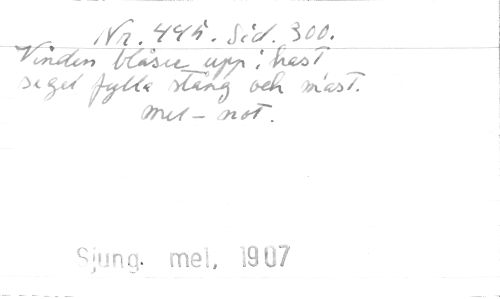 Nr. 445. Sid. 300.
Vinden blåser upp i hast
seget fylla stång och mast.
mel – not.
Sjung. mel, 1907